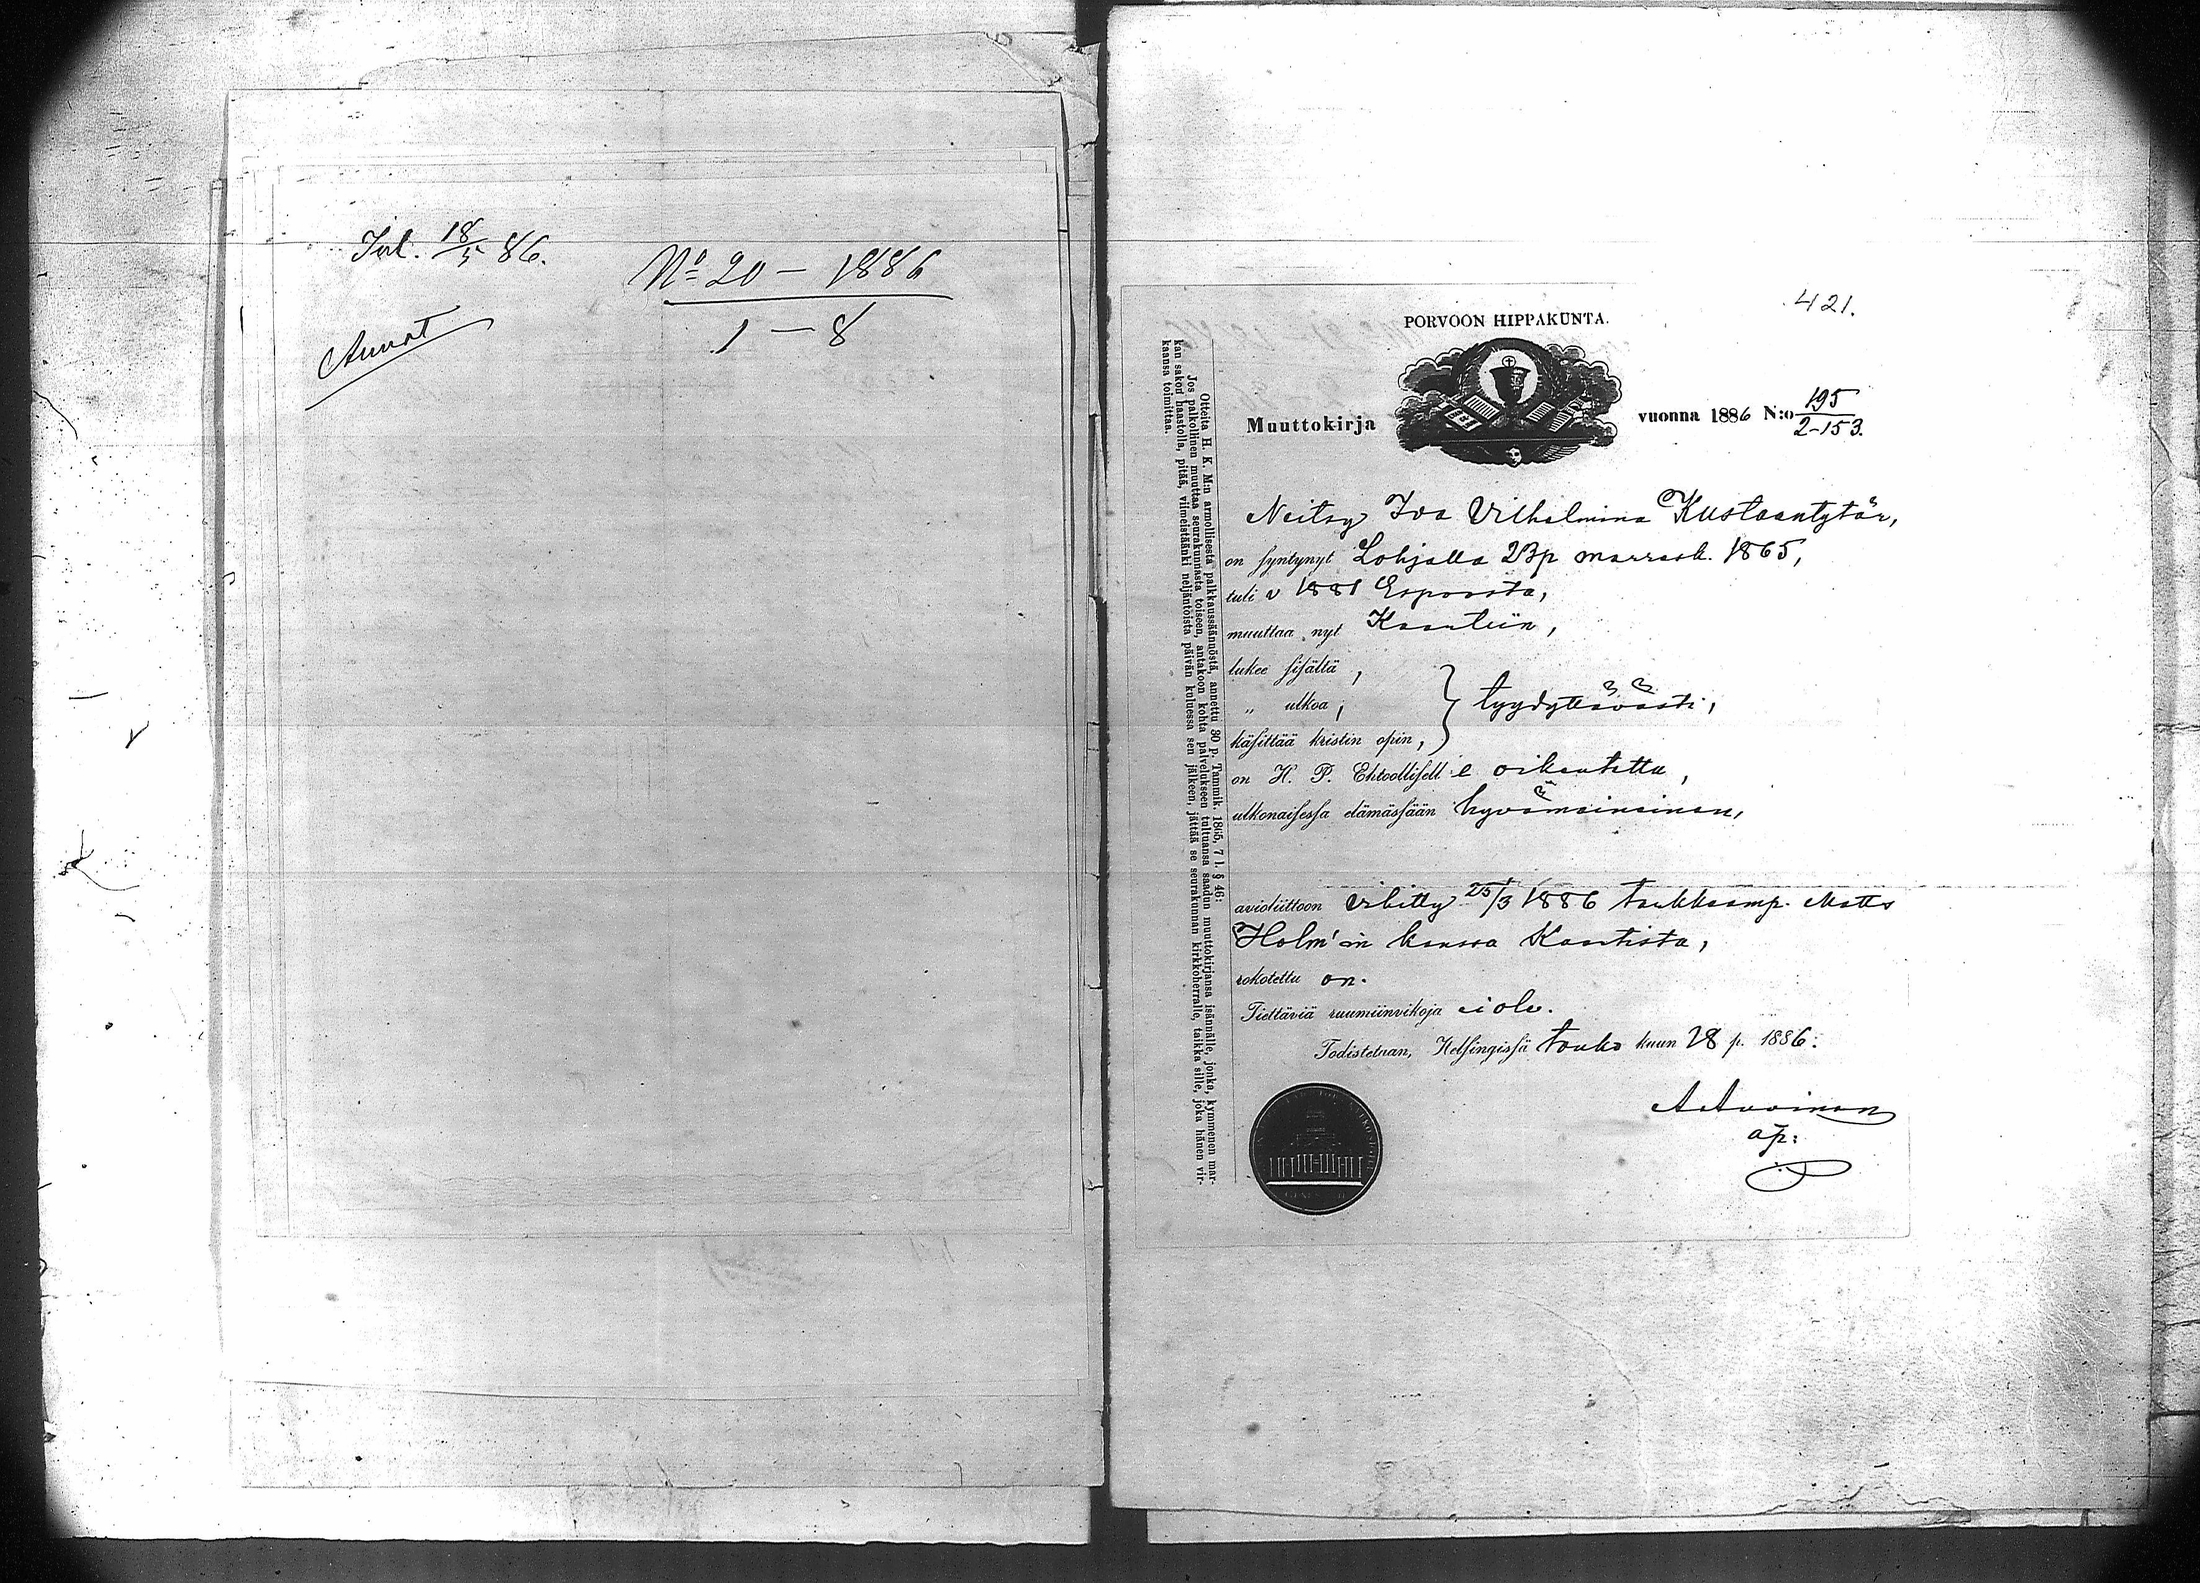 Ink. 18/5 86.
Nº 20 – 1886
1 – 8
Annot
421.
PORVOON HIPPAKUNTA.
Muuttokirja vuonna 1886 N:o 195
2-153.
Neitsy Ida Vilhelmina Kustaantytär,
on syntynyt Lohjalla 23 p marrask. 1865,
tuli v 1881 Espoosta,
muuttaa nyt Kaantiin,
lukee sisältä,
„ ulkoa,
tyydyttävästi,
käsittää kristin opin,
on H. P. Ehtoollisell e oikeutettu,
ulkonaisessa elämässään hyvämaineinen,
avioliittoon vihitty 25/3 1886 Matts
Holm'in kanssa Kaantista,
rokotettu on.
Tiettäviä ruumiinvikoja ei ole.
Todistetaan, Helsingissä touko kuun 28 p. 1886.
ap:
Otteita H. K. M:n armollisesta palkkaussäännöstä, annettu 30 p. Tammik. 1865, 7 l. § 46:
Jos palkollinen muuttaa seurakunnasta toiseen, antakoon kohta palvelukseen tultuansa saadun muuttokirjansa isännälle, jonka, kymmenen mar-
kan sakon haastolla, pitää, viimeistäänki neljäntoista päivän kuluessa sen jälkeen, jättää se seurakunnan kirkkoherralle, taikka sille, joka hänen vir-
kaansa toimittaa.